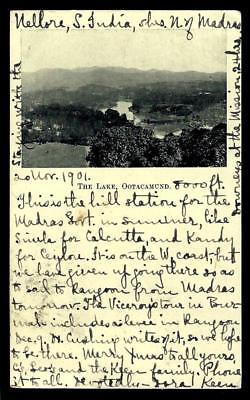 Nellore, S. India, 8 hrs. N of Madras
Staying with the
at the Mission 24 hrs.
20 Nov. 1901.
THE LAKE, OOTACAMUND. 8000 ft.
This is the hill station for the
Madras Govt. in summer, like
Simla for Calcutta and Kandy
for Ceylon. It is on the W. coast, but
we have given up going there so as
to sail to Rangoon from Madras
tomorrow. The Viceroy's tour in Bur-
mah includes a levee in Rangoon
Dec. 9. N. Cushing writes it, so we hope
to be there. Merry Xmas to all yours,
and the Keen family. Phone
it to all. Devotedly Dora Keen